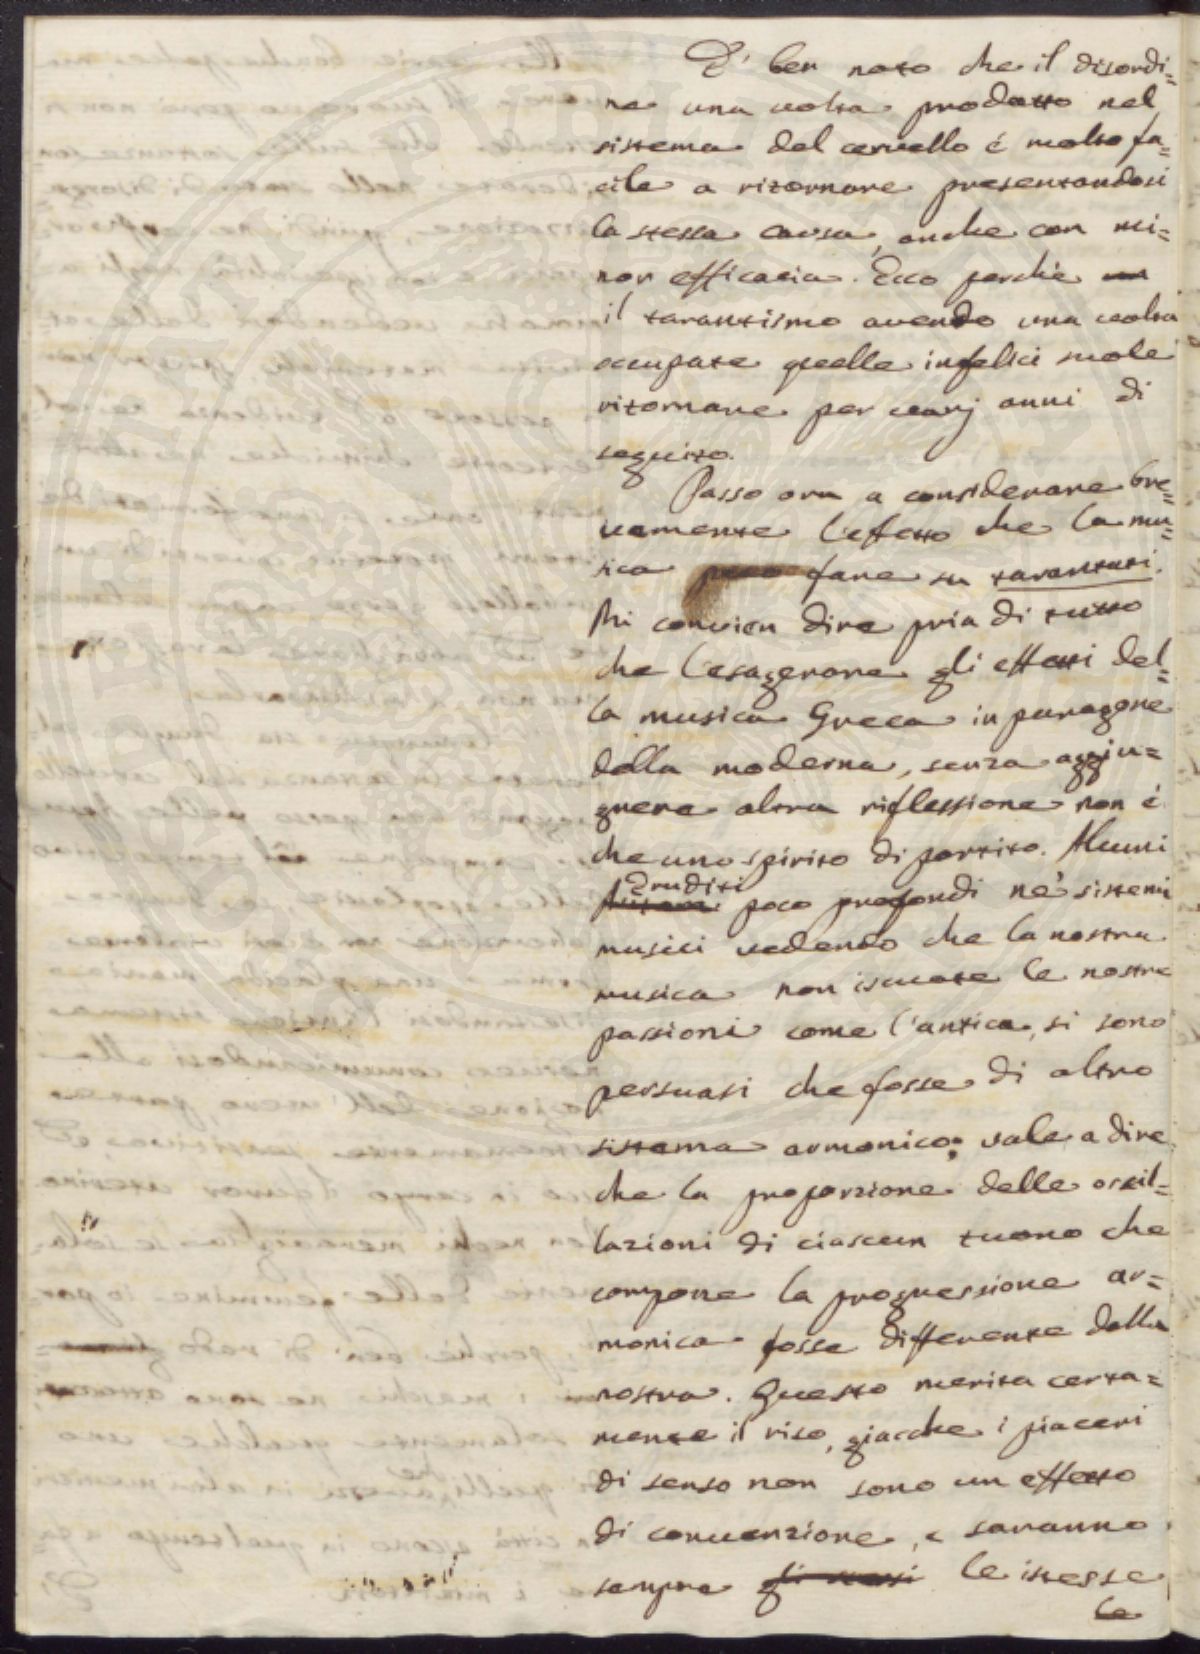 E' ben noto che il disordi=
ne una volta prodotto nel
sistema del cervello é molto fa=
cile a ritornare presentandosi
la stessa causa, anche con mi=
nor efficacia. Ecco perchè
il tarantismo avendo una volta
occupate quelle infelici suole
ritornare per varj anni di
seguito.
Passo ora a considerare bre=
vemente l'effetto che la mu=
sica puo fare su tarantati.
Mi convien dire pria di tutto
che l'esagerare gli effetti del=
la musica Greca in paragone
della moderna, senza aggiu=
gnere altra riflessione non é
che uno spirito di partito. Alcuni
Eruditi
poco profondi ne' sistemi
musici vedendo che la nostra
musica non iscuote le nostre
passioni come l'antica, si sono
persuasi che fosse di altro
sistema armonico; vale a dire
che la proporzione delle oscil=
lazioni di ciascun tuono che
compone la progressione ar=
monica fosse differente dalla
nostra. Questo merita certa=
mente il riso, giacche i piaceri
di senso non sono un effetto
di convenzione, e saranno
sempre gli stessi le istesse
le